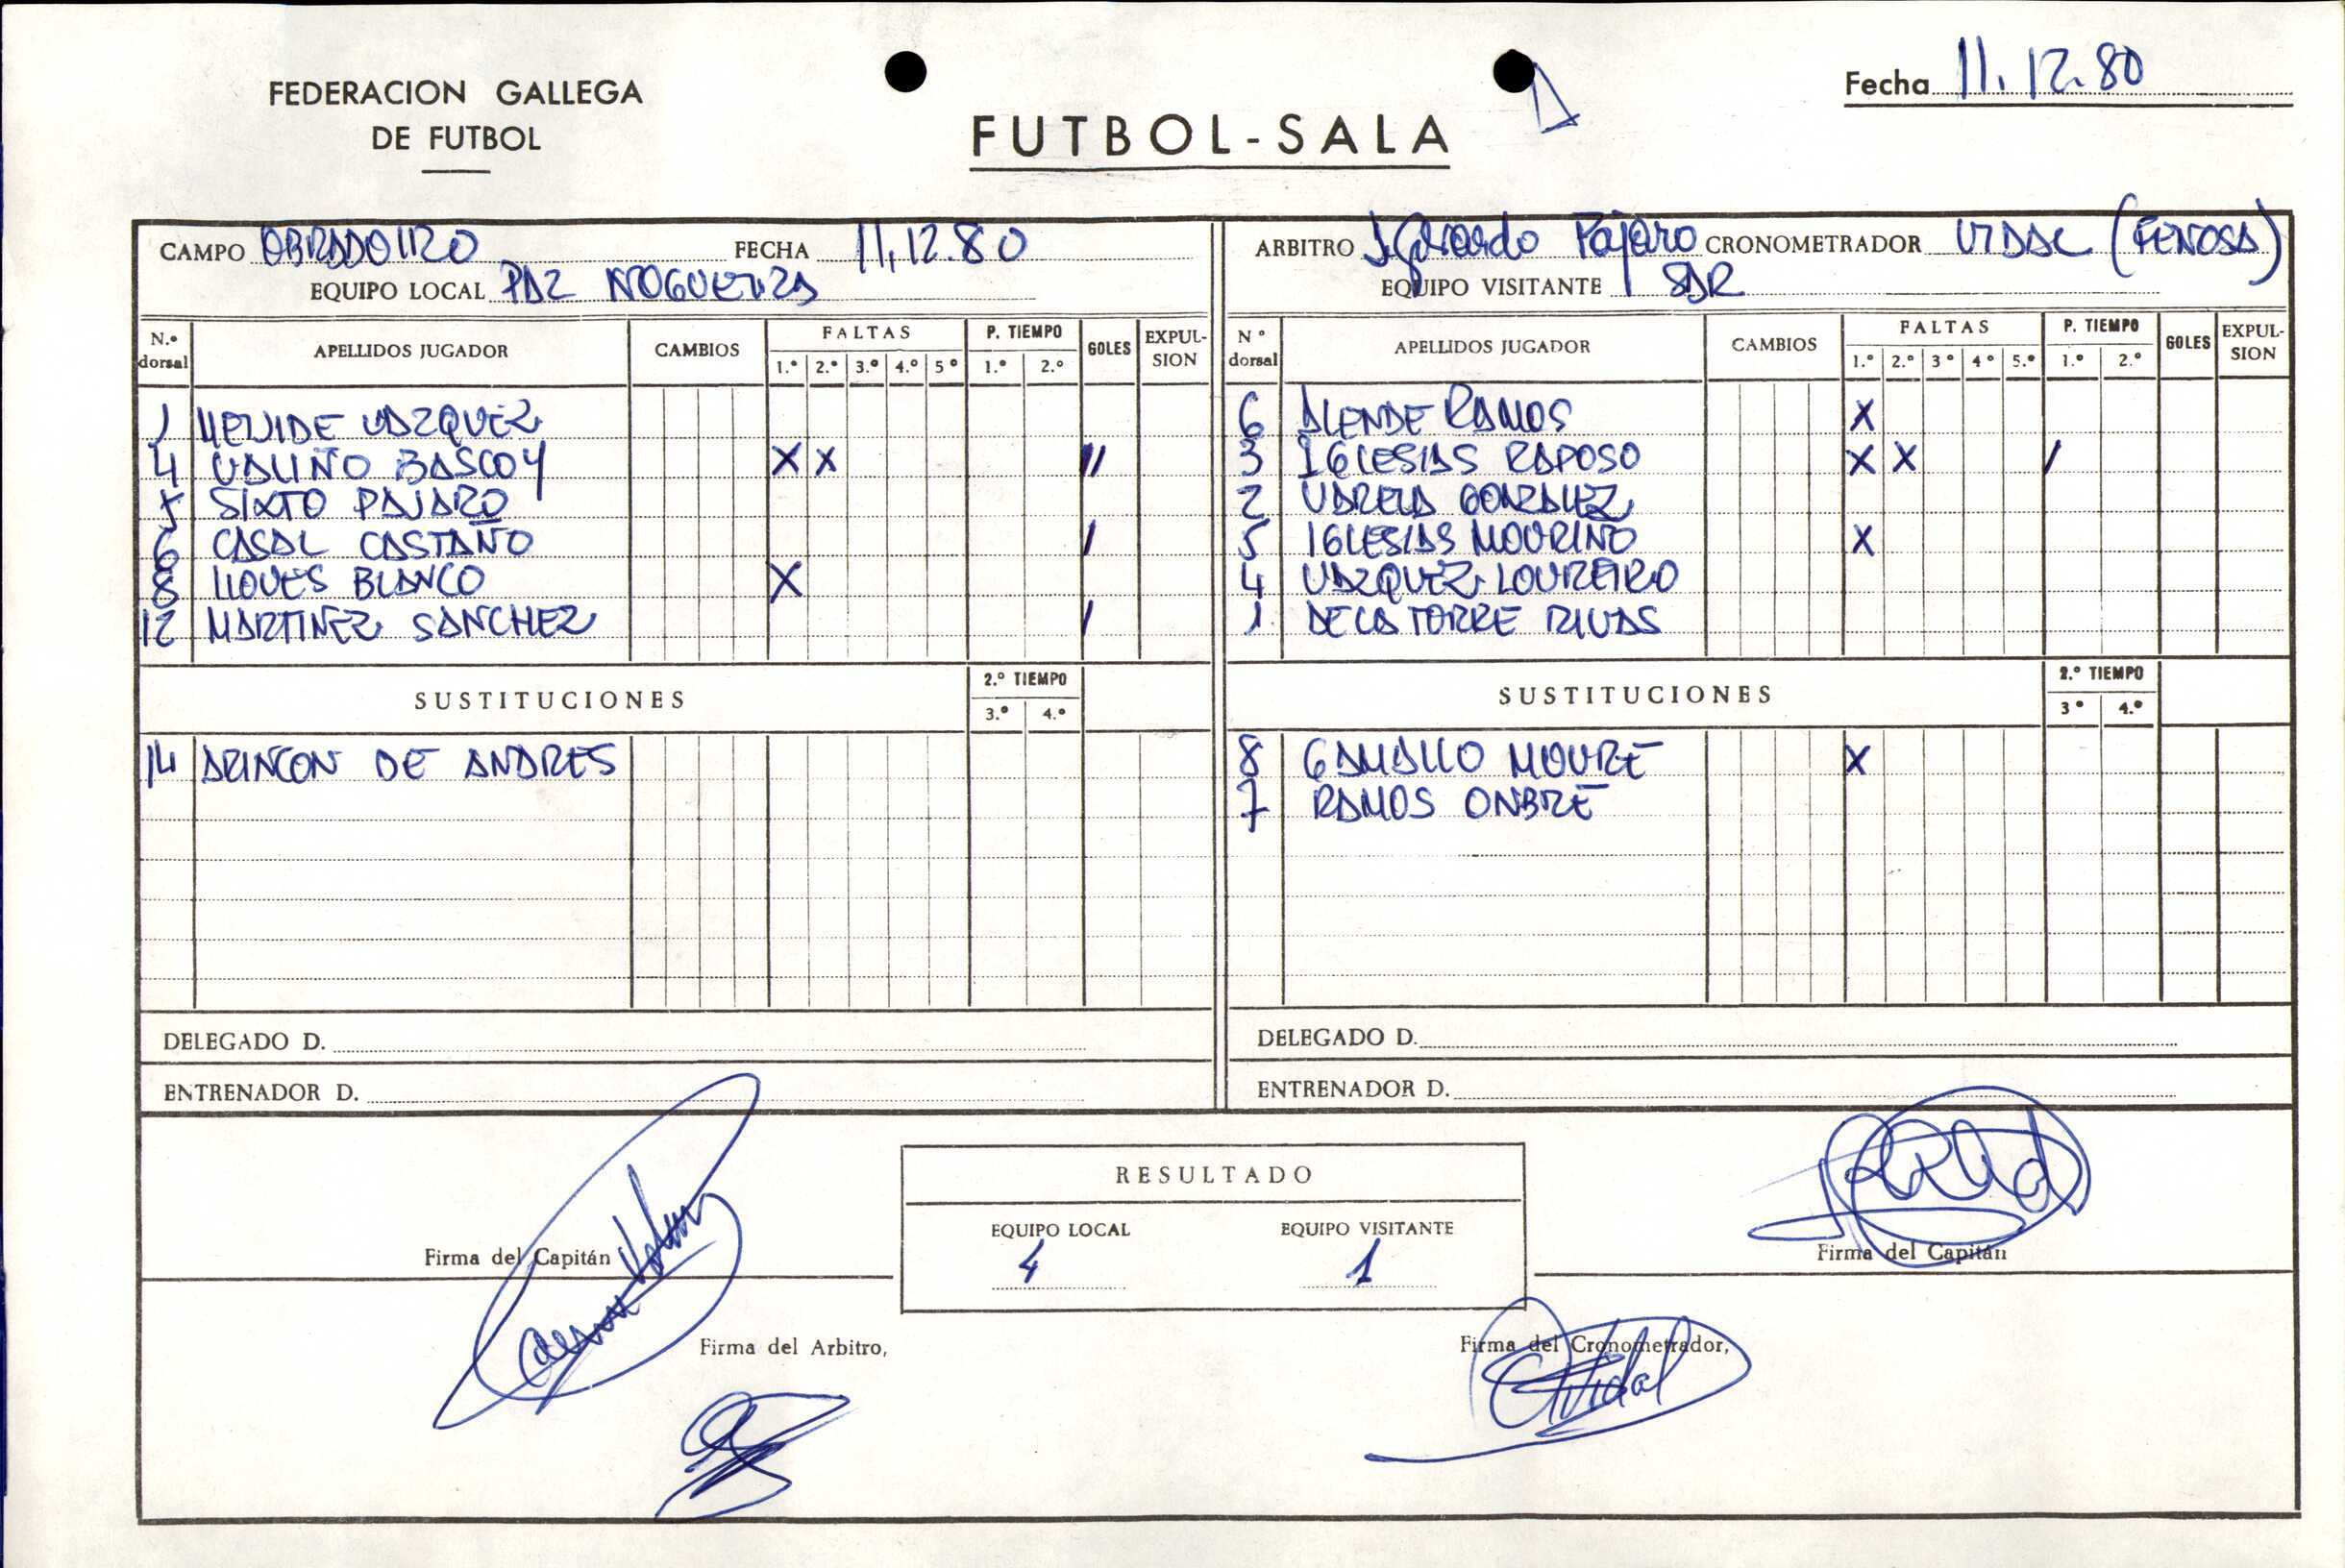 FEDERACION GALLEGA
DE FUTBOL
FUTBOL-SALA
Fecha 11.12.80
CAMPO OBRADOIRO FECHA 11.12.80
EQUIPO LOCAL PAZ NOGUEIRA
ARBITRO Pajaro CRONOMETRADOR VIDAL (FENOSA)
EQUIPO VISITANTE SAR
N.º dorsal APELLIDOS JUGADOR CAMBIOS FALTAS 1.º 2.º 3.º 4.º 5º P. TIEMPO 1.º 2.º GOLES EXPUL-SION
1 MEIJIDE VAZQUEZ
4 VALIÑO BASCOY X X 11
5 SIXTO PAJARO
6 CASAL CASTAÑO 1
8 LLOVES BLANCO X
12 MARTINEZ SANCHEZ 1
SUSTITUCIONES 2.º TIEMPO 3.º 4.º
14 ARINCON DE ANDRES
DELEGADO D.
ENTRENADOR D.
Nº dorsal APELLIDOS JUGADOR CAMBIOS FALTAS 1.º 2.º 3º 4º 5.º P. TIEMPO 1.º 2.º GOLES EXPUL-SION
6 ALENDE RAMOS X
3 IGLESIAS RAPOSO X X /
2 VARELA GONZALEZ
5 IGLESIAS MOURIÑO X
4 VAZQUEZ LOUREIRO
1 DE LA TORRE RIVAS
SUSTITUCIONES 2.º TIEMPO 3º 4.º
8 GAMALLO MOURE X
7 RAMOS ONBRE
DELEGADO D.
ENTRENADOR D.
RESULTADO
EQUIPO LOCAL EQUIPO VISITANTE
4 1
Firma del Capitán
Firma del Capitán
Firma del Arbitro,
Firma del Cronometrador,
Vidal